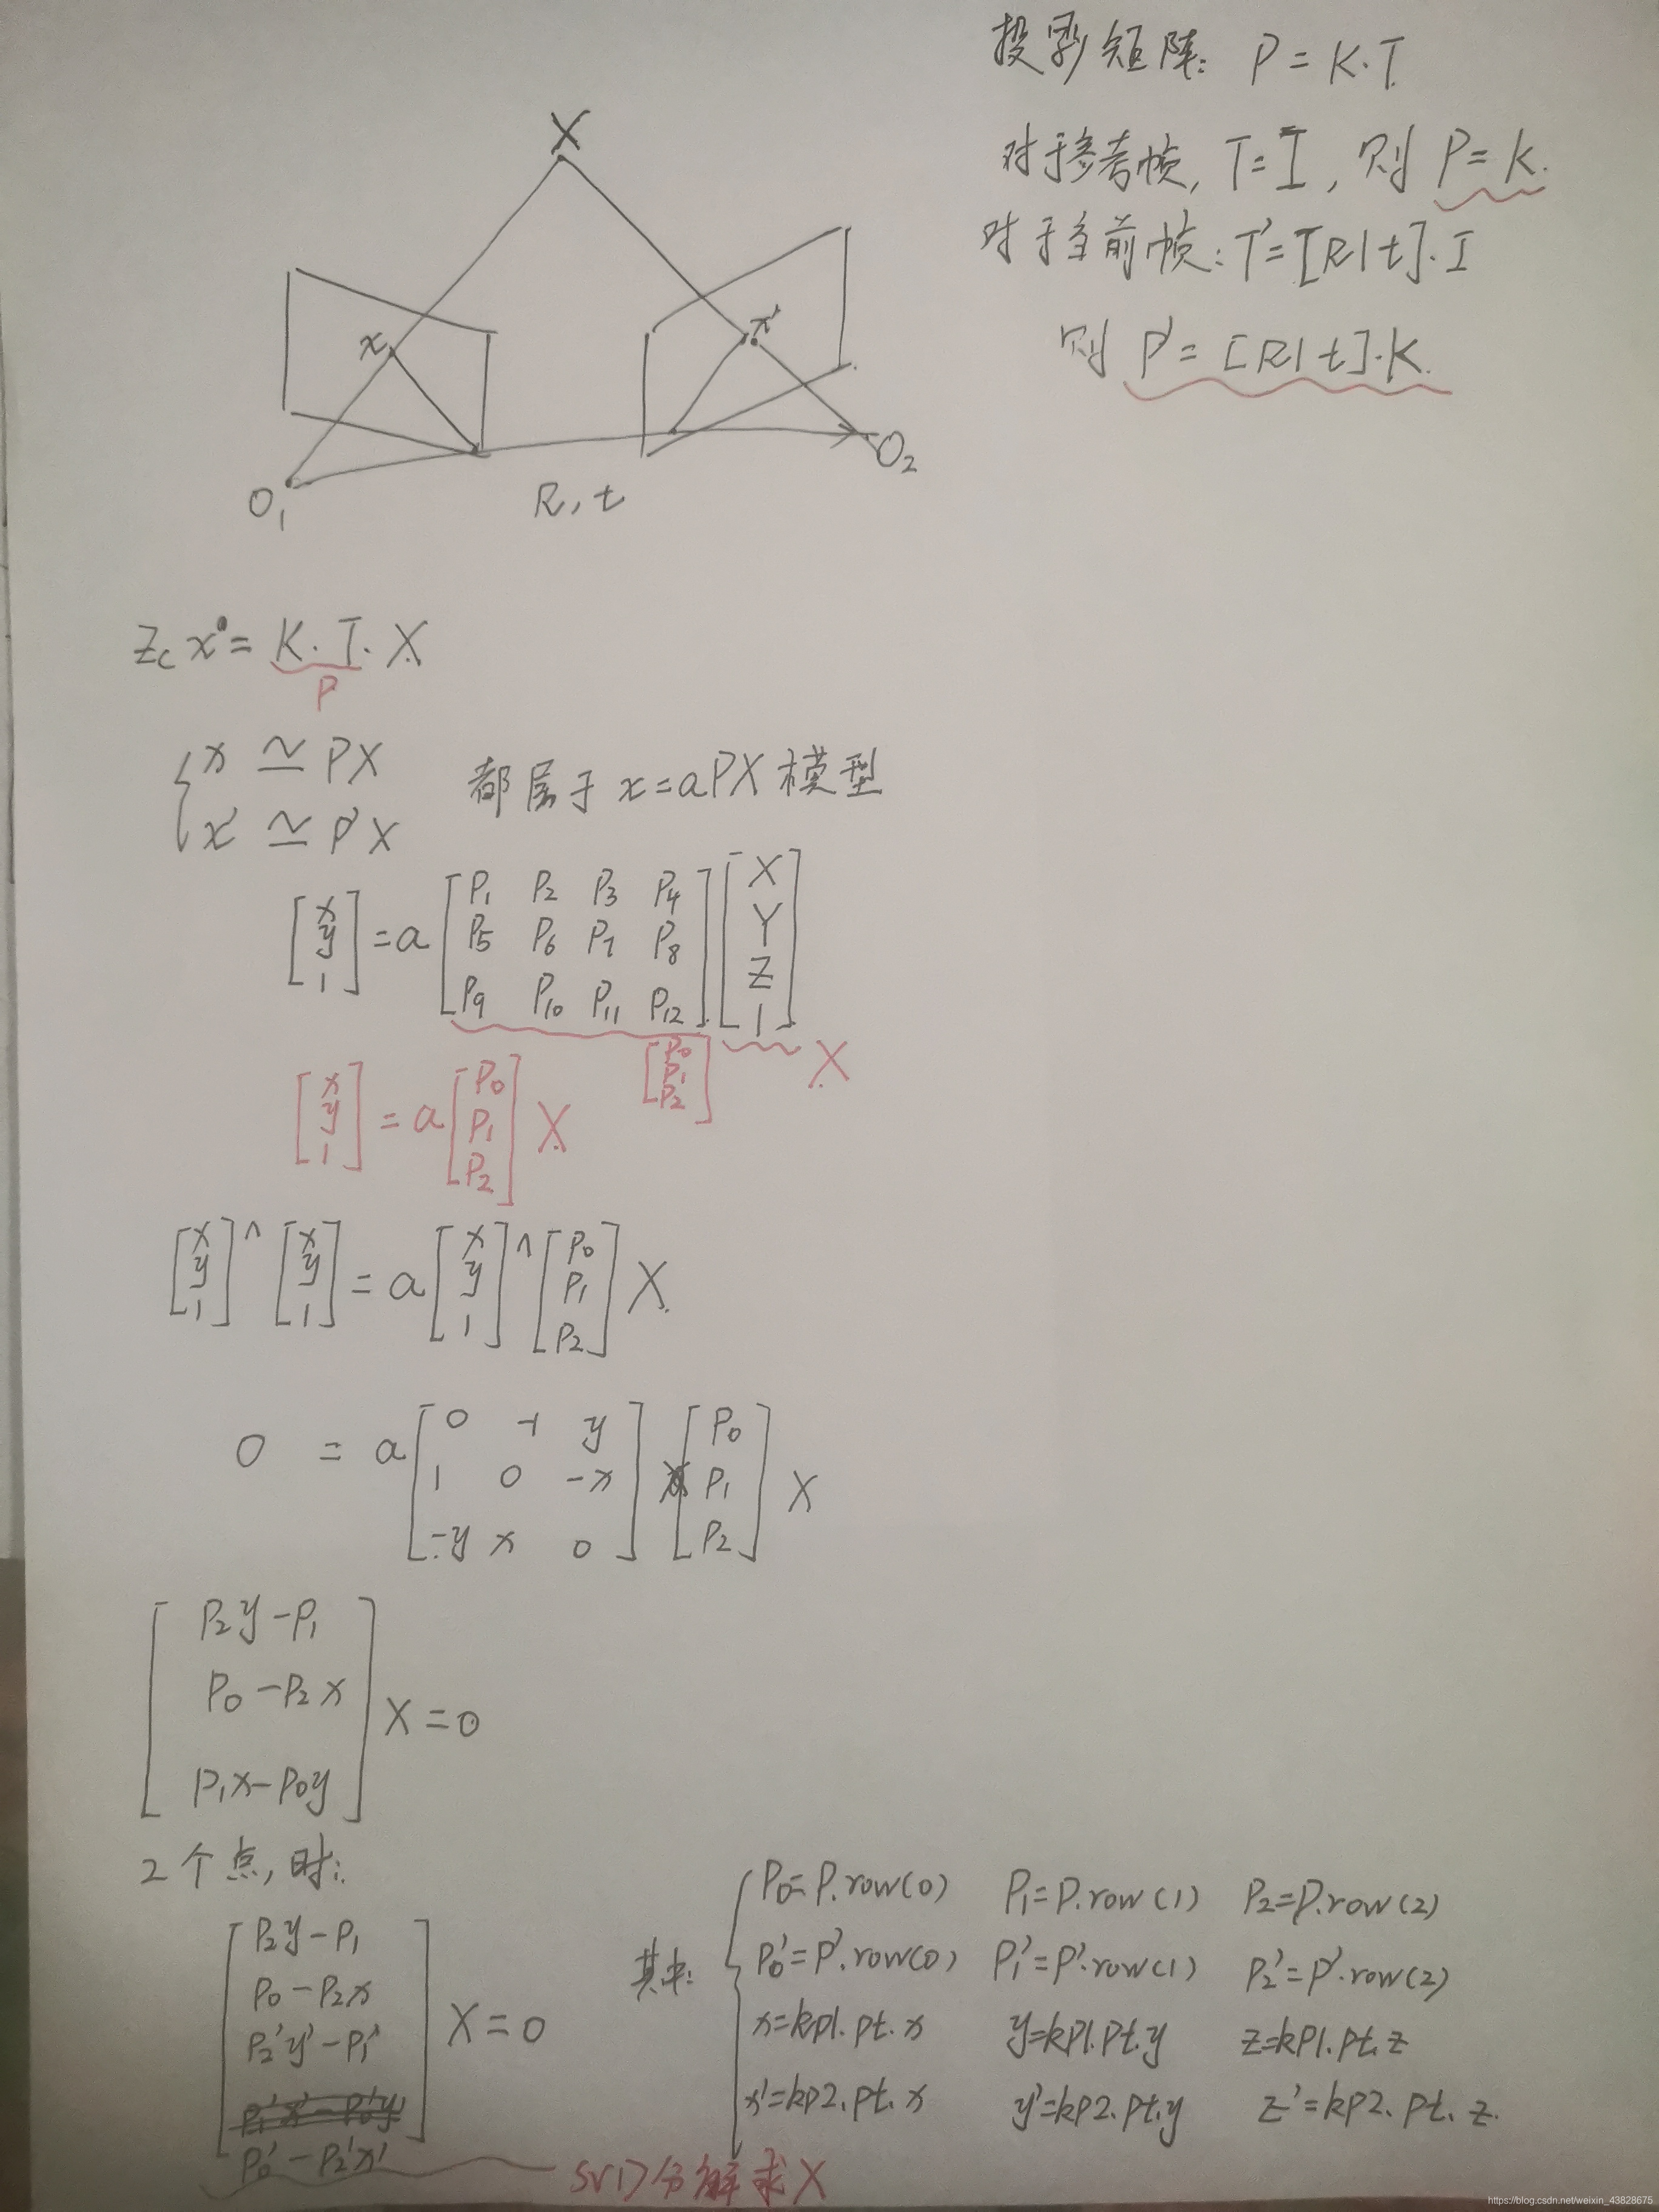 投影矩阵: P = K·T
对于参考帧, T=I, 则 P=K.
对于当前帧: T'=[R|t]·I
则 P' = [R|t]·K.
X
x
x'
O₁
R, t
O₂
Zc x = K·T·X
P
{ x ≃ PX
x' ≃ P'X
都属于 x=aPX 模型
[x y 1] = a [P₁ P₂ P₃ P₄
P₅ P₆ P₇ P₈
P₉ P₁₀ P₁₁ P₁₂] [X Y Z 1]
[P₀ P₁ P₂] X
[x y 1] = a [P₀ P₁ P₂] X
[x y 1]^ [x y 1] = a [x y 1]^ [P₀ P₁ P₂] X
0 = a [0 -1 y
1 0 -x
-y x 0] [P₀ P₁ P₂] X
[P₂y-P₁
P₀-P₂x
P₁x-P₀y] X=0
2个点,时:
[P₂y-P₁
P₀-P₂x
P₂'y'-P₁'
P₁'x'-P₀'y'
P₀'-P₂'x'] X=0
其中: { P₀=P.row(0) P₁=P.row(1) P₂=P.row(2)
P₀'=P'.row(0) P₁'=P'.row(1) P₂'=P'.row(2)
x=kp1.pt.x y=kp1.pt.y z=kp1.pt.z
x'=kp2.pt.x y'=kp2.pt.y z'=kp2.pt.z.
SVD分解求X
https://blog.csdn.net/weixin_43828675